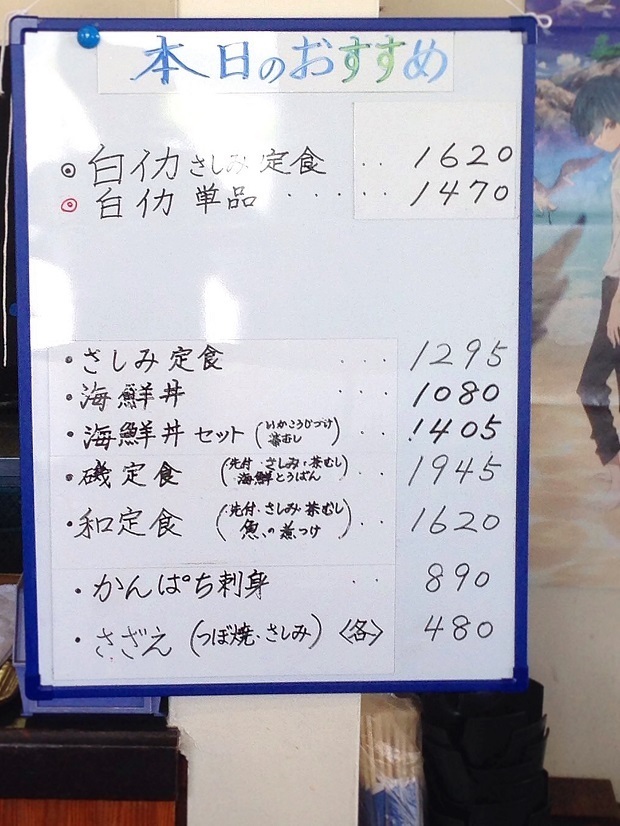 本日のおすすめ
◎ 白イカさしみ定食 ・・ 1620
◎ 白イカ 単品 ・・・・・ 1470
・さしみ定食 ・・・ 1295
・海鮮丼 ・・・ 1080
・海鮮丼セット (いかこうじづけ ・・ 1405
茶むし)
・磯定食 (先付・さしみ・茶むし ・・ 1945
海鮮とうばん)
・和定食 (先付・さしみ・茶むし ・・ 1620
魚の煮つけ)
・かんぱち刺身 ・・ 890
・さざえ (つぼ焼・さしみ) <各> 480